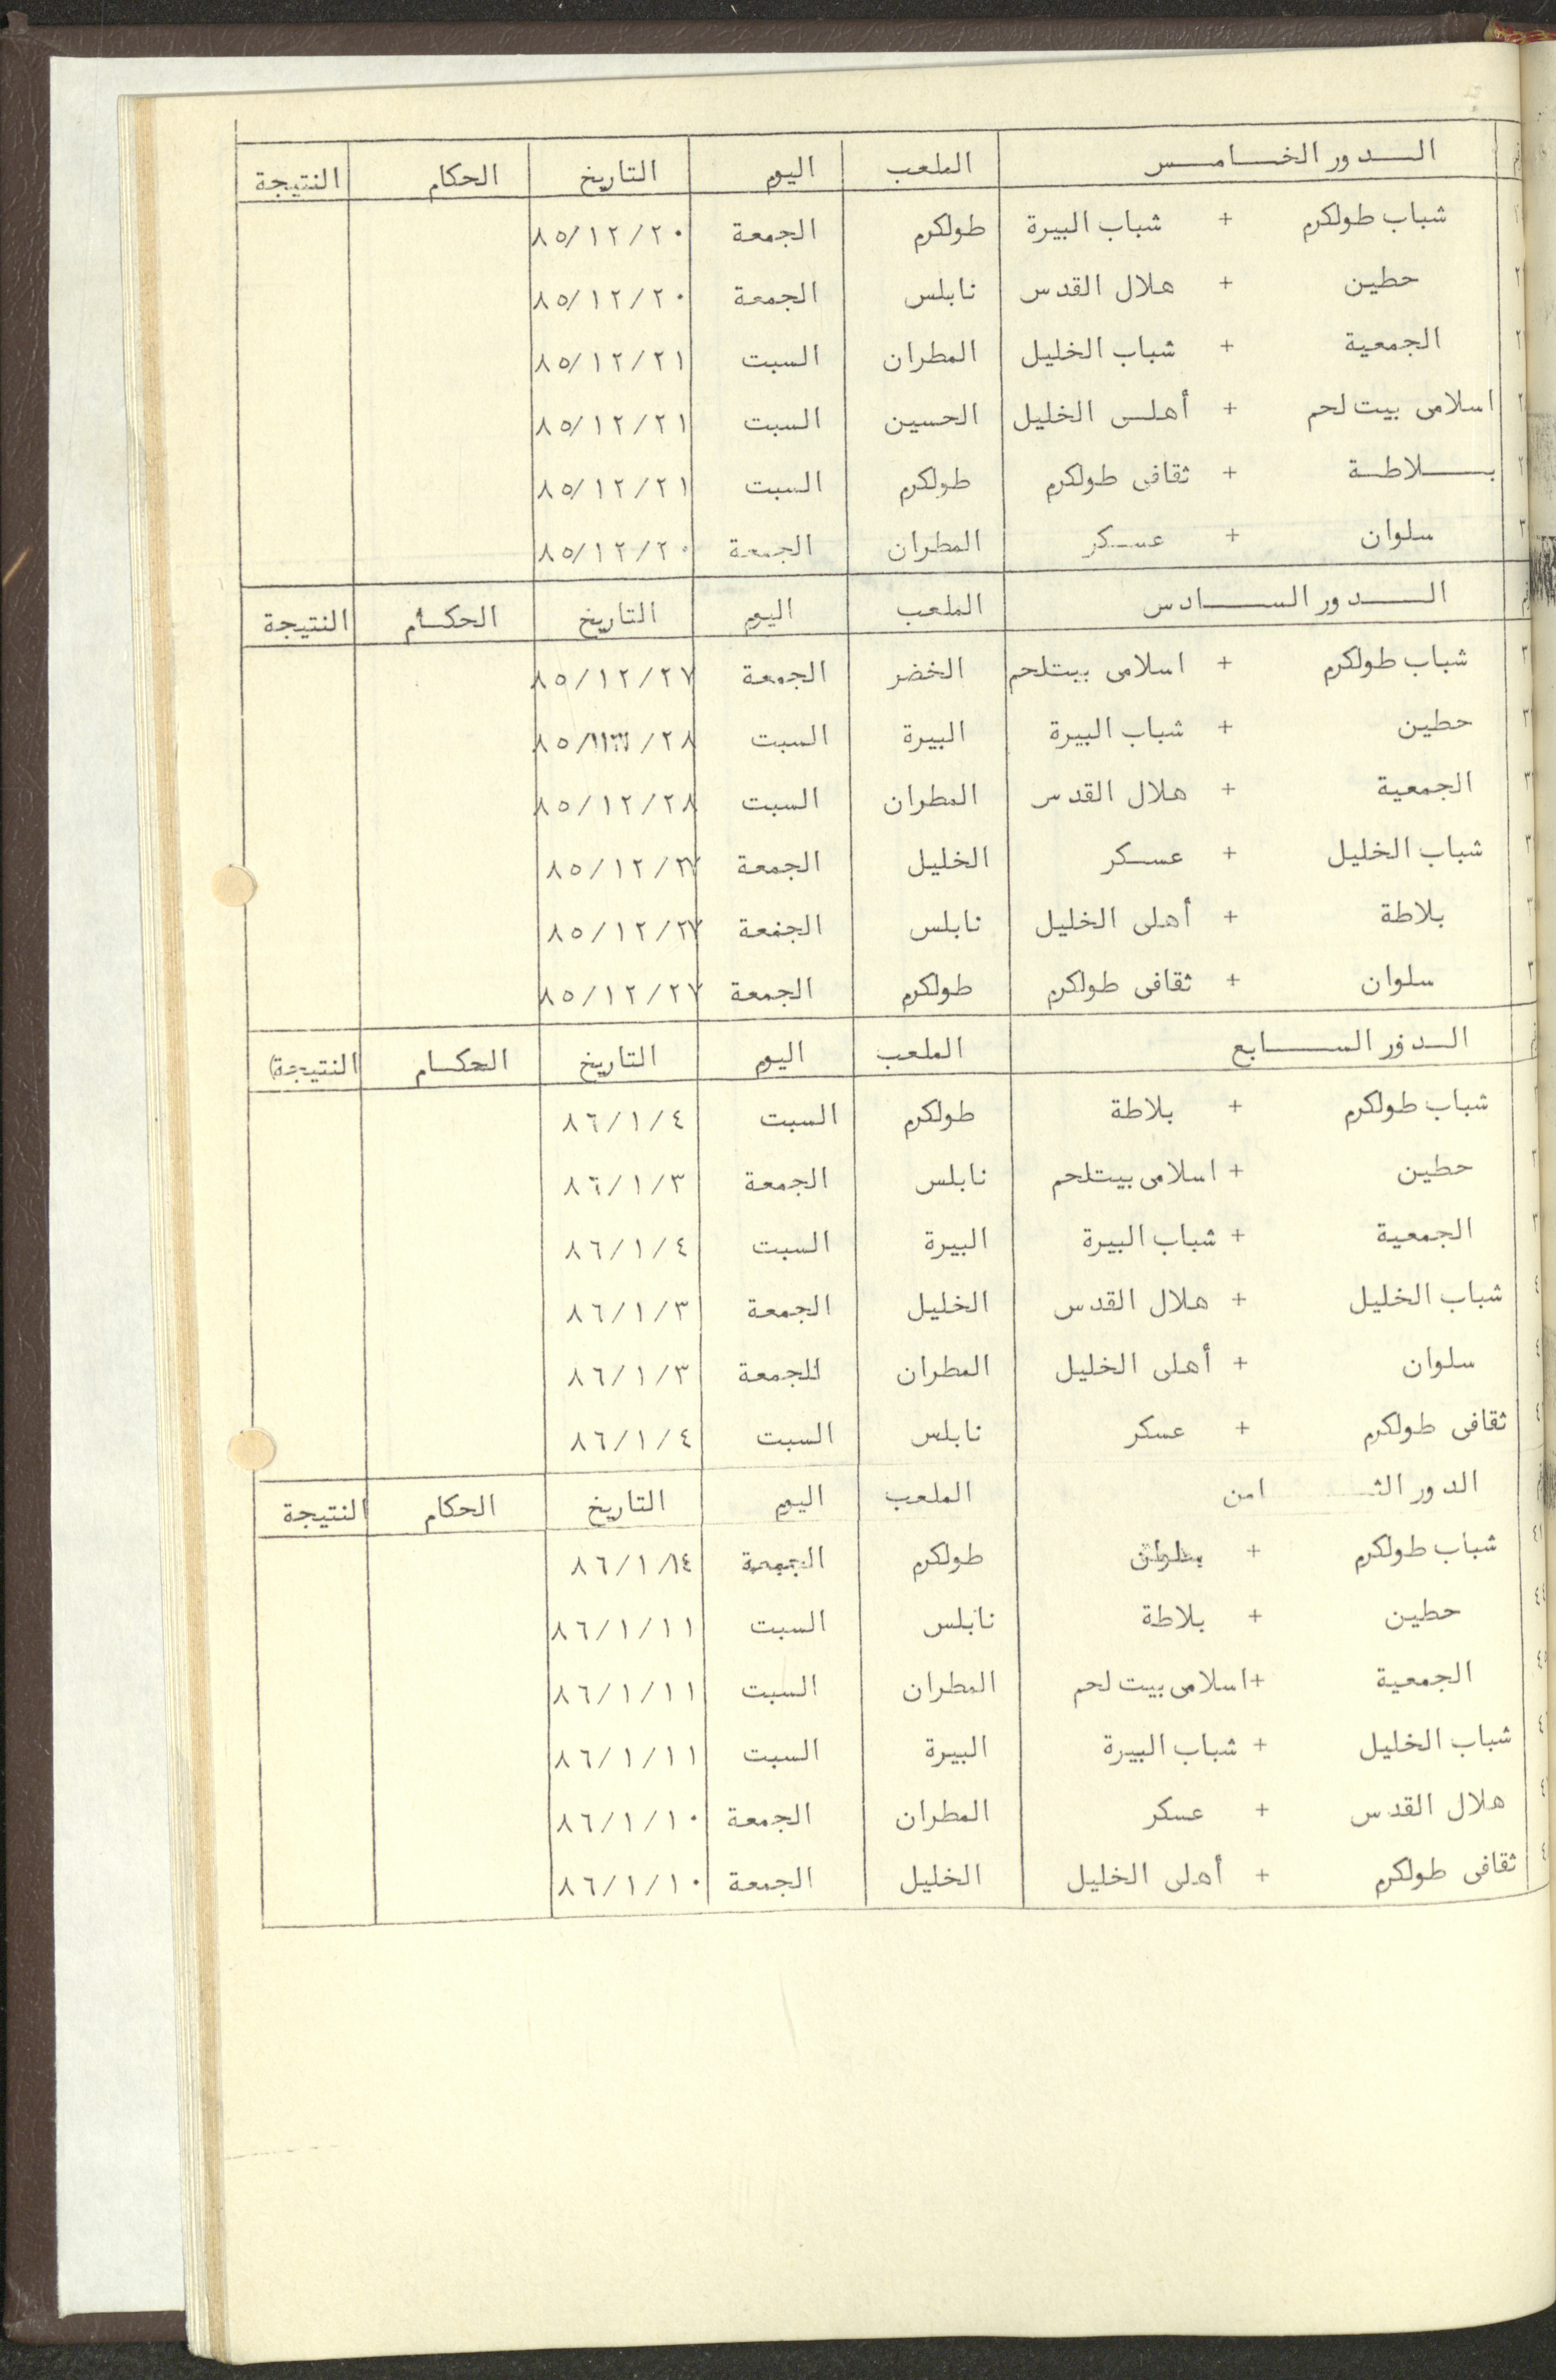 الـــدور الخـــامـــس الملعب اليوم التاريخ الحكام النتيجة
شباب طولكرم + شباب البيرة طولكرم الجمعة ٨٥/١٢/٢٠
حطين + هلال القدس نابلس الجمعة ٨٥/١٢/٢٠
الجمعية + شباب الخليل المطران السبت ٨٥/١٢/٢١
اسلامى بيت لحم + أهلـى الخليل الحسين السبت ٨٥/١٢/٢١
بـــلاطـة + ثقافى طولكرم طولكرم السبت ٨٥/١٢/٢١
سلوان + عسـكر المطران الجمعة ٨٥/١٢/٢٠
الـــدور الســـادس الملعب اليوم التاريخ الحكـام النتيجة
شباب طولكرم + اسلامى بيتلحم الخضر الجمعة ٨٥/١٢/٢٧
حطين + شباب البيرة البيرة السبت
الجمعية + هلال القدس المطران السبت ٨٥/١٢/٢٨
شباب الخليل + عسـكر الخليل الجمعة ٨٥/١٢/٢٧
بلاطة + أهلى الخليل نابلس الجمعة ٨٥/١٢/٢٧
سلوان + ثقافى طولكرم طولكرم الجمعة ٨٥/١٢/٢٧
الـدور الســـابع الملعب اليوم التاريخ الحكـام النتيجة)
شباب طولكرم + بلاطة طولكرم السبت ٨٦/١/٤
حطين + اسلامى بيتلحم نابلس الجمعة ٨٦/١/٣
الجمعية + شباب البيرة البيرة السبت ٨٦/١/٤
شباب الخليل + هلال القدس الخليل الجمعة ٨٦/١/٣
سلوان + أهلى الخليل المطران الجمعة ٨٦/١/٣
ثقافى طولكرم + عسكر نابلس السبت ٨٦/١/٤
الدور الثـــامن الملعب اليوم التاريخ الحكام النتيجة
شباب طولكرم + طولكرم الجمعة
حطين + بلاطة نابلس السبت ٨٦/١/١١
الجمعية + اسلامى بيت لحم المطران السبت ٨٦/١/١١
شباب الخليل + شباب البيرة البيرة السبت ٨٦/١/١١
هلال القدس + عسكر المطران الجمعة ٨٦/١/١٠
ثقافى طولكرم + أهلى الخليل الخليل الجمعة ٨٦/١/١٠